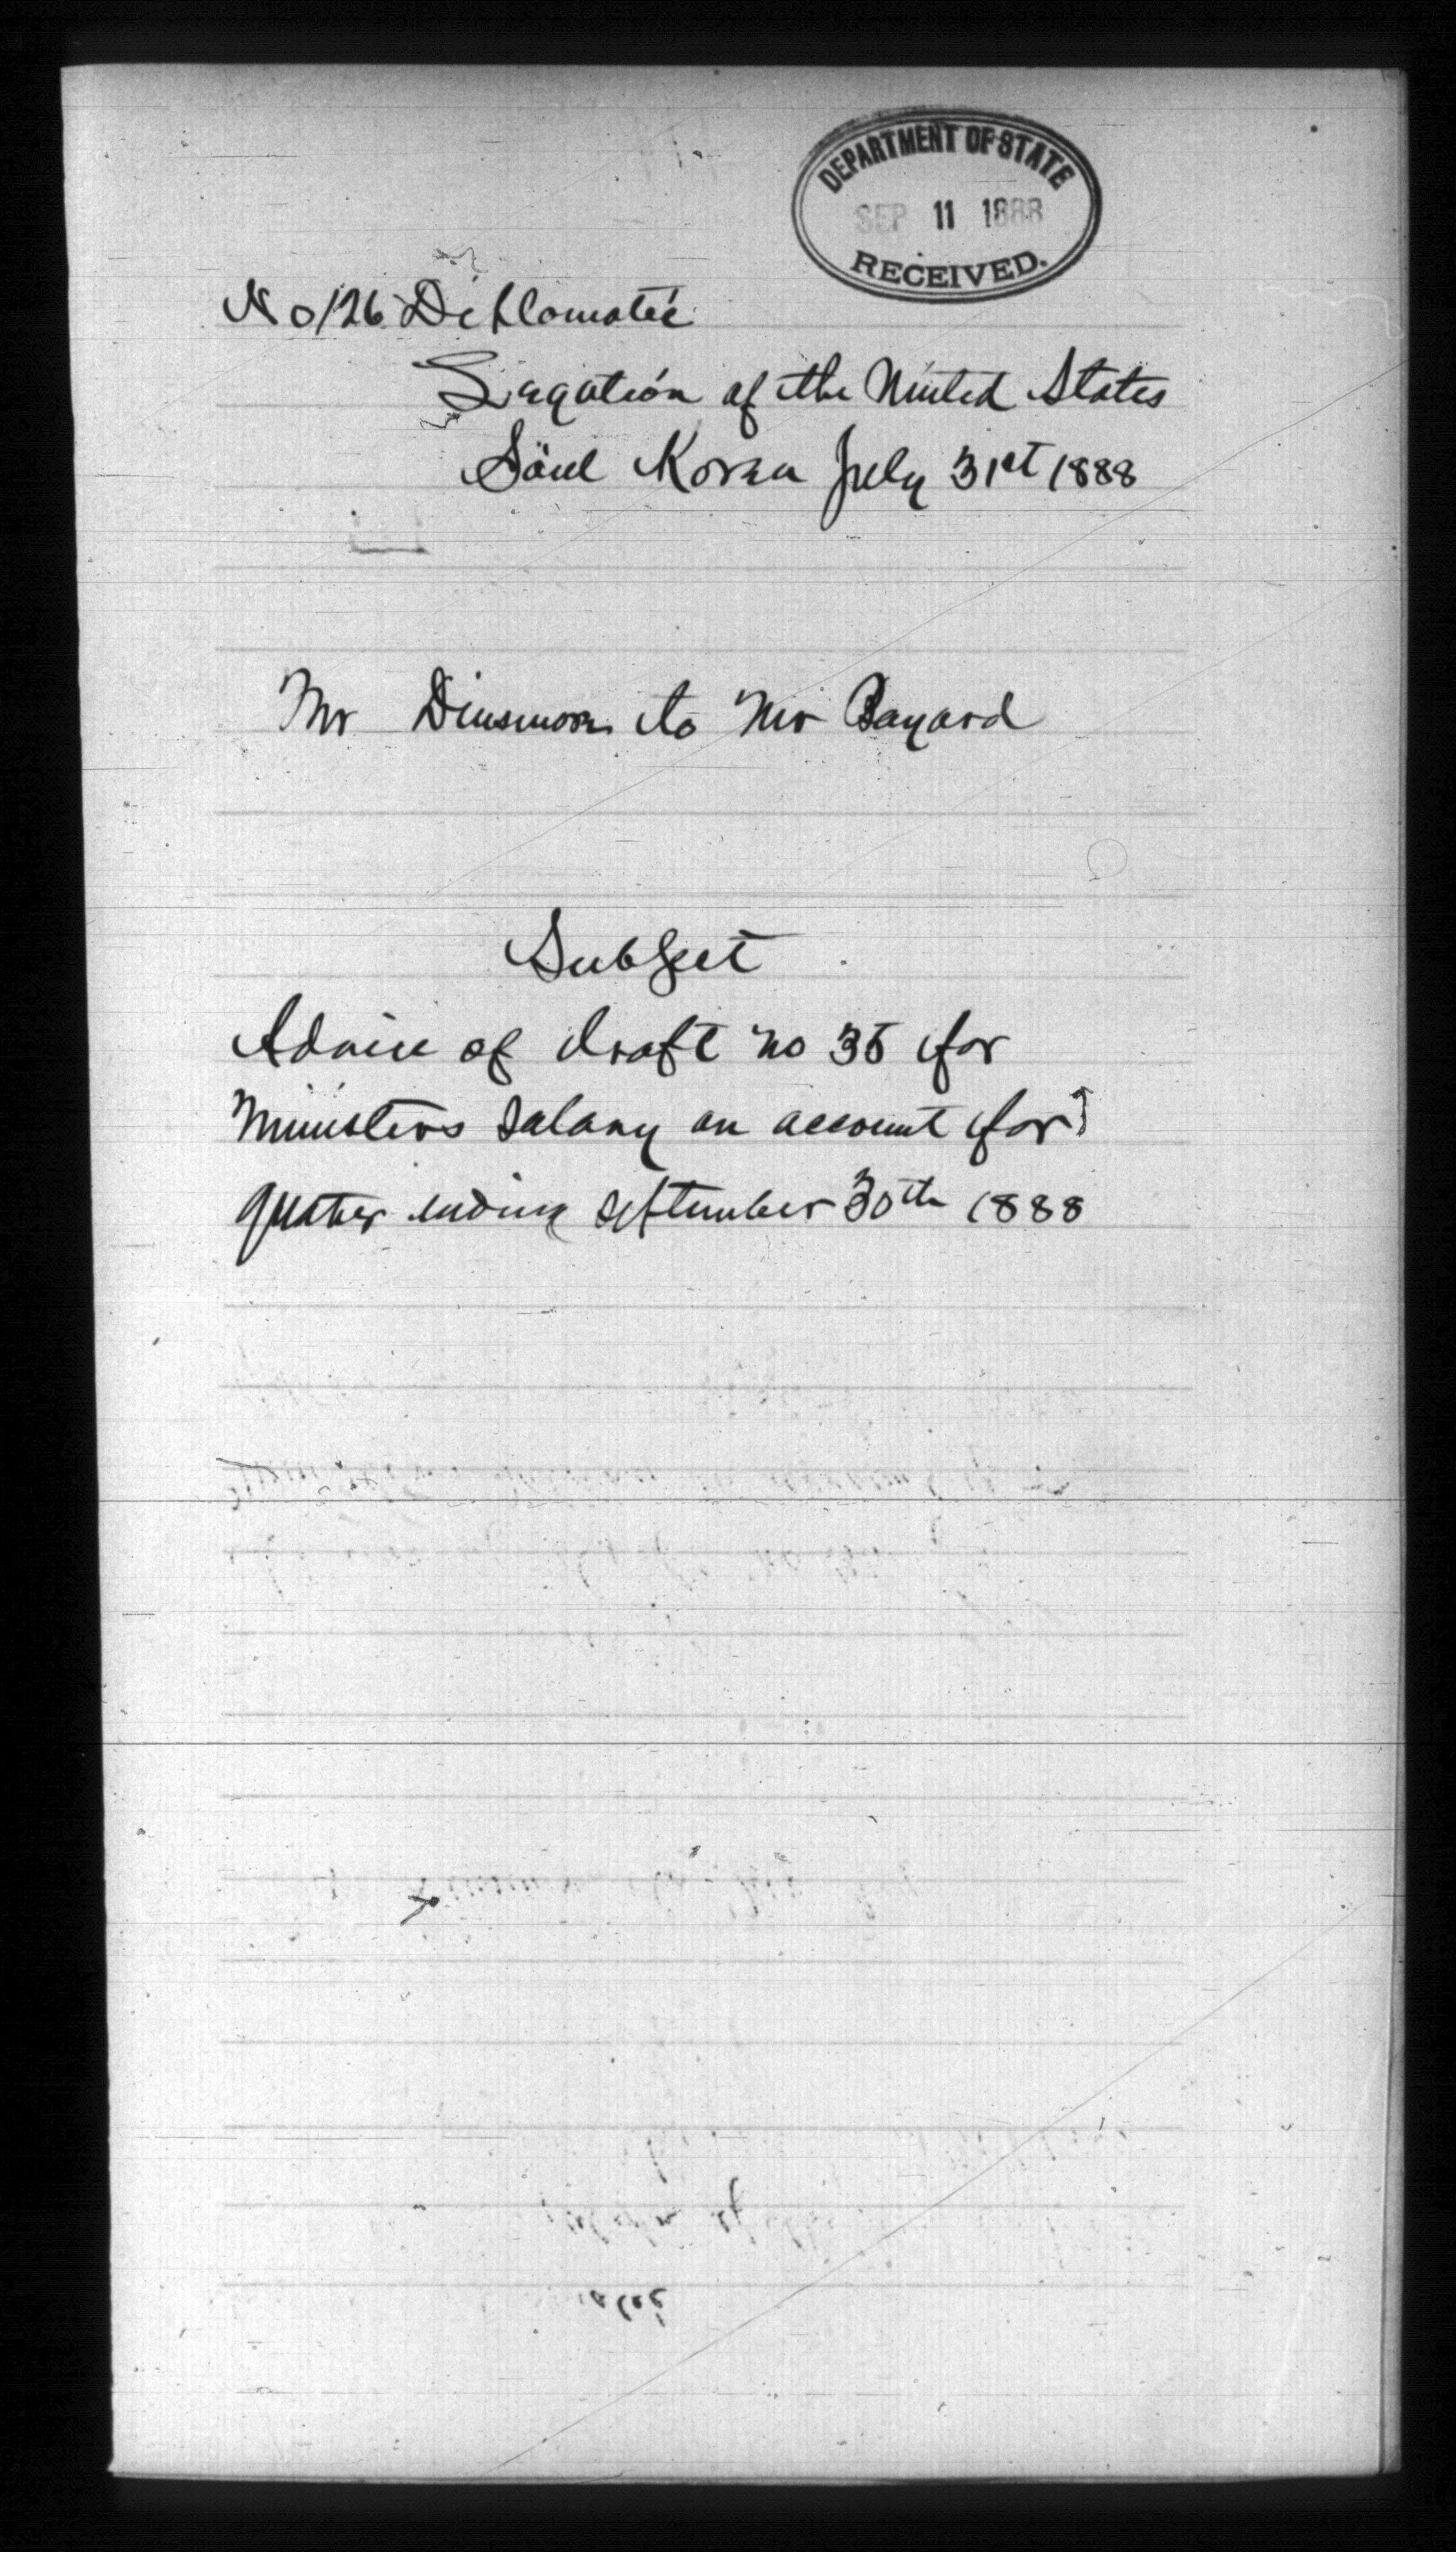 DEPARTMENT OF STATE
SEP 11 1888
RECEIVED.
No 126 Diplomatic
Legation of the United States
Söul Korea July 31st 1888
Mr Dinsmore to Mr Bayard
Subject
Advice of draft no 35 for
Ministers salary on account for
quater ending September 30th 1888